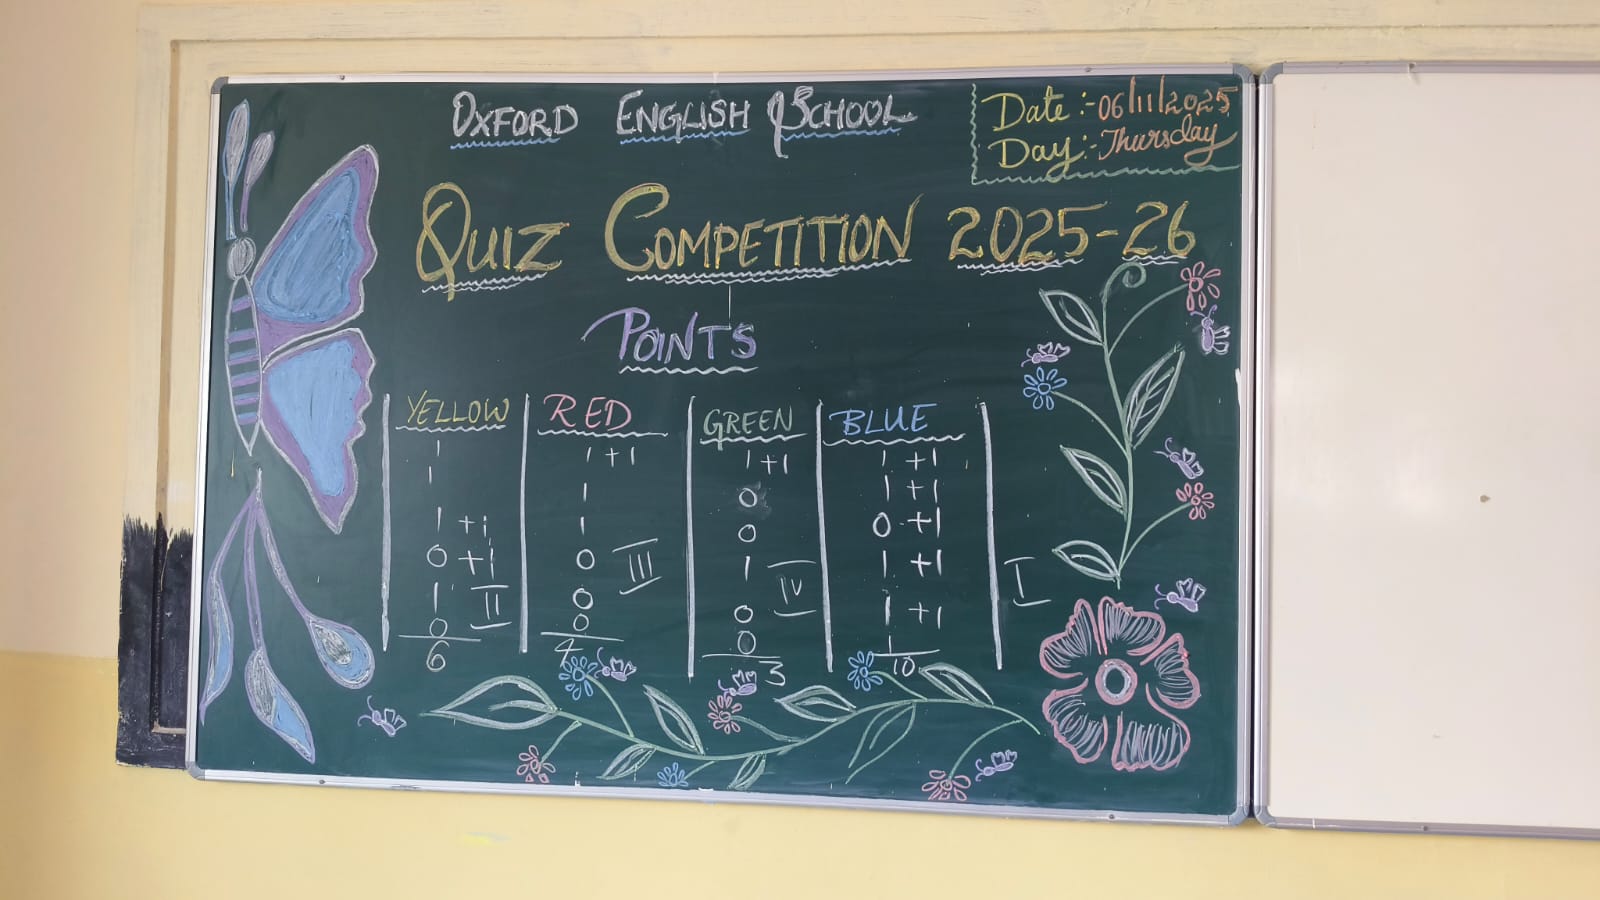 OXFORD ENGLISH SCHOOL
Date:- 06/11/2025
Day:- Thursday
QUIZ COMPETITION 2025-26
POINTS
YELLOW RED GREEN BLUE
1 1+1 1+1 1+1
1 1 0 1+1
1+1 1 0 0+1
0+1 0 III 1 1+1 I
1 II 0 IV 0 1+1
0 0 0 1
6 4 3 10